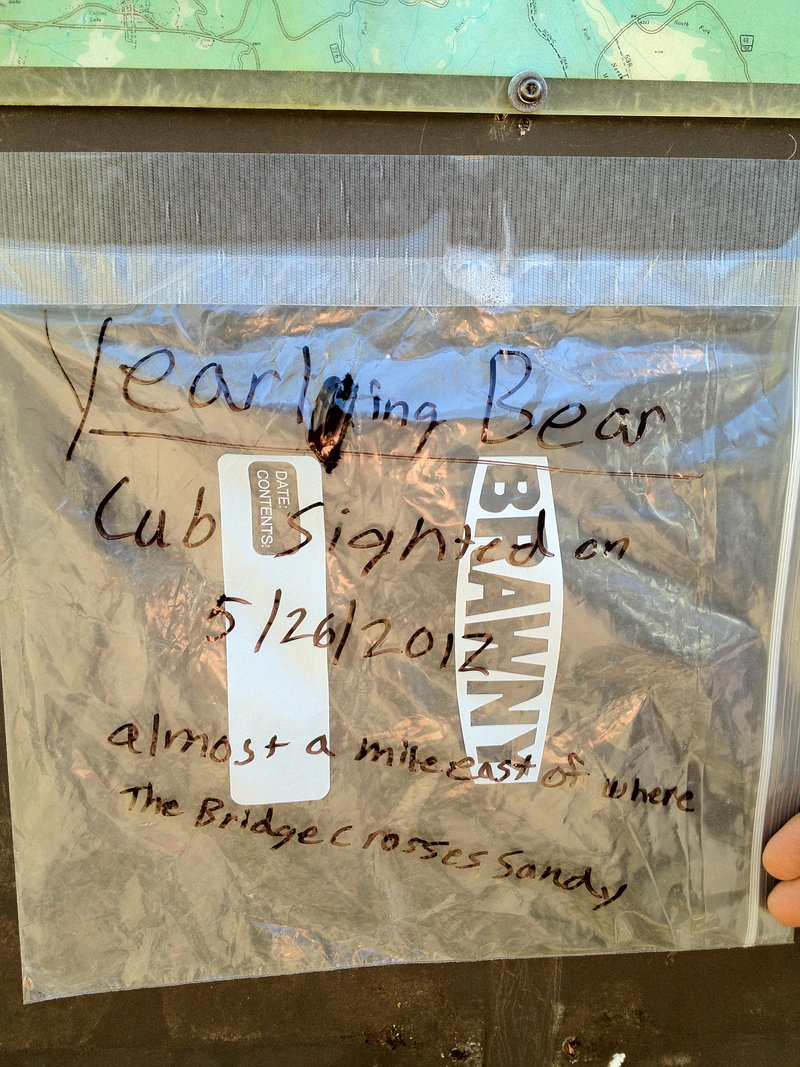 Yearlying Bear
Cub Sighted on
5/26/2012
almost a mile east of where
The Bridge crosses Sandy
DATE:
CONTENTS:
BRAWNY
South Fork